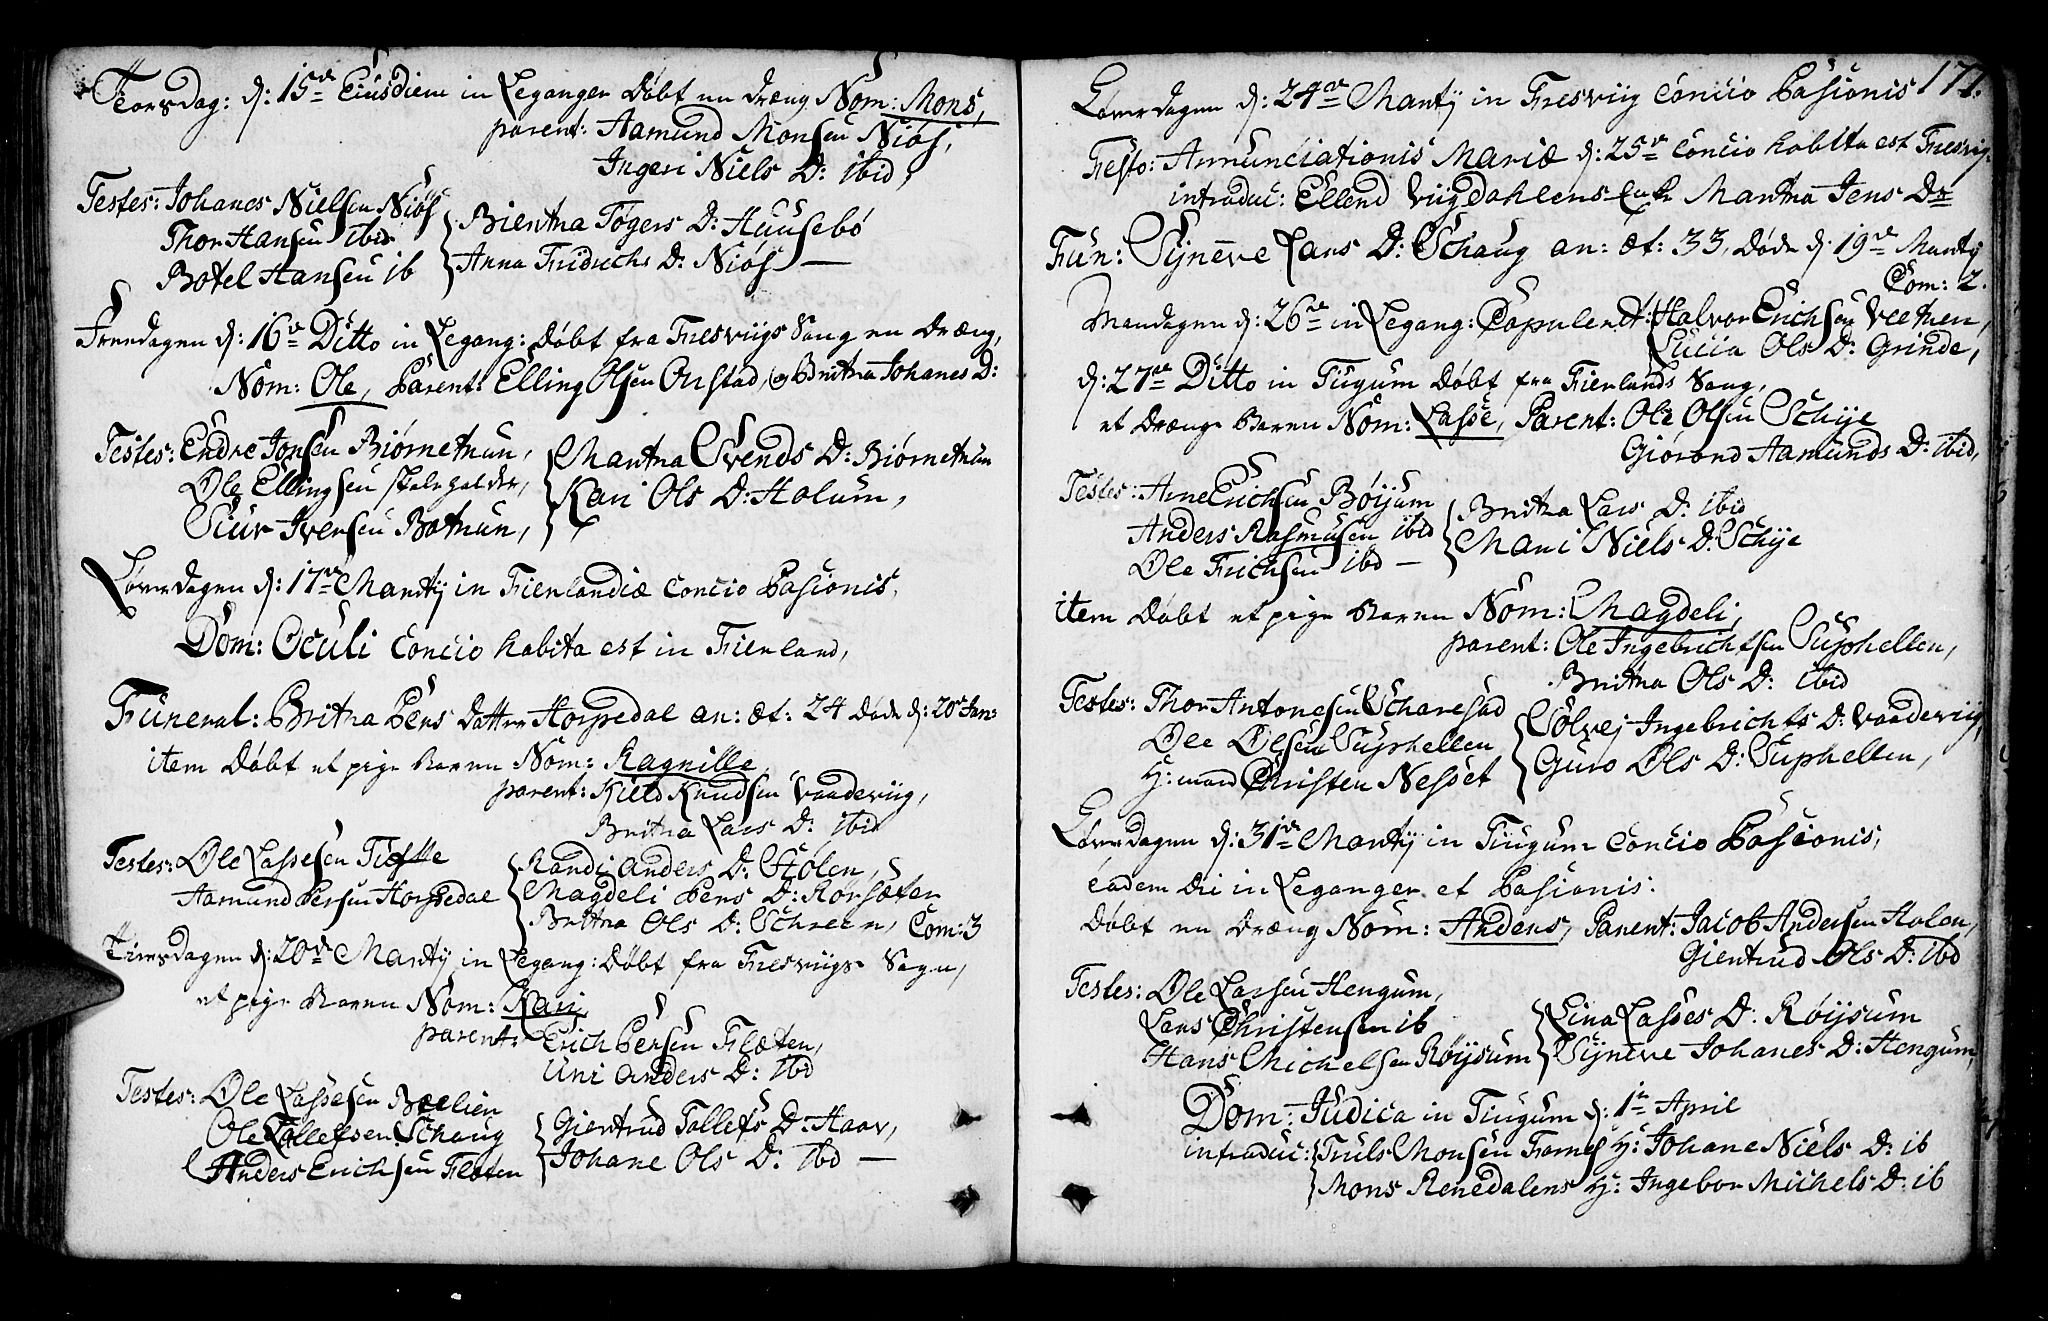 Torsdag: d: 15de Eiusdiem in Leganger Døbt en dræng Nom: Mons,
parent: Aamund Monsen Niøs,
Ingeri Niels D: ibid,
Testes: Johanes Nielsen Niøs
Thor Hansen ibid
Botel Hansen ib
Biertha Togers D: Huusebø
Anna Fridrichs D: Niøs —
Freedagen d: 16de Ditto in Legang: Døbt fra Fresviigs Sang en Dræng,
Nom: Ole, Parent: Elling Olsen Orstad, og Britha Johanes D:
Testes: Endre Jonsen Biørnethun,
Ole Ellingsen
Siur Iversen Bothun,
Martha Svends D: Biørnethun
Kari Ols D: Holum,
Løverdagen d: 17de Martij in Fierlandiæ Concio Pasionis,
Dom: Oculi Concio habita est in Fierland,
Funeral: Britha Pers Datter Horpedal an: æt: 24 døde d: 20de Jan:
item Døbt et pige Baren Nom: Ragnille,
parent: Kield Knudsen Vaadeviig,
Britha Lars D: ibid
Testes: Ole Lassesen Tiøtte
Aamund Persen Horpedal
Randi Anders D: Stølen,
Magdeli Pers D: Rørsæter
Britha Ols D: Schreen, Com: 3
Tirsdagen d: 20de Martij in Legang: Døbt fra Fresviigs Sogn,
et pige Baren Nom: Kari
parent: Erich Persen Flæten,
Uni Anders D: ibd
Testes: Ole Lassesen Bælien
Ole Tollefsen Schaug
Anders Erichsen Fløten
Giertrud Tollefs D: Haav,
Johane Ols D: ibd —
177.
Løverdagen d: 24de Martij in Fresviig Concio Pasionis
Festo: Annunciationis Mariæ d: 25de Concio habita est Fresvig.
introduc: Ellend Vigdahlens Enke Martha Jens Dr
Fun: Sÿneve Lars D: Schaug an: æt: 33, døde d: 19de Martij
Com: 2.
Mandagen d: 26de in Legang: Copulerdt: Halvor Erichsen Veethen,
Lucia Ols D: Grinde,
d: 27de Ditto in Tugum døbt fra Fierlands Sang,
et Drænge Baren Nom: Lasse, Parent: Ole Olsen Schije
Giørond Aamunds D: ibid,
Testes: Arne Erichsen Bøijum
Anders Rasmusen ibid
Ole Erichsen ibd —
Britha Lars D: ibid
Mari Niels D: Schije
item Døbt et pige Baren Nom: Magdeli,
parent: Ole Ingebrichtsen Suphellen,
Britha Ols D: ibid
Testes: Thor Antonesen Scharestad
Ole Olsen Suphellen
H: mand Christen Nesset
Sølvej Ingebrichts D: Vaadeviig,
Guro Ols D: Suphellen,
Løverdagen d: 31de Martij in Tiugum Concio Pasionis,
eadem die in Leganger et Pasionis:
Døbt en Dræng Nom: Anders, Parent: Jacob Andersen Holen,
Giertrud Ols D: ibd
Testes: Ole Larsen Hengum,
Lars Christensen ib
Hans Michelsen Røijsum
Lina Lasses D: Røijsum
Sÿneve Johanes D: Hengum,
Dom: Judica in Tiugum d: 1te April
introduc: Truls Monsen Farnes H: Johane Niels D: ib
Mons Renedalens H: Ingebor Michels D: ib